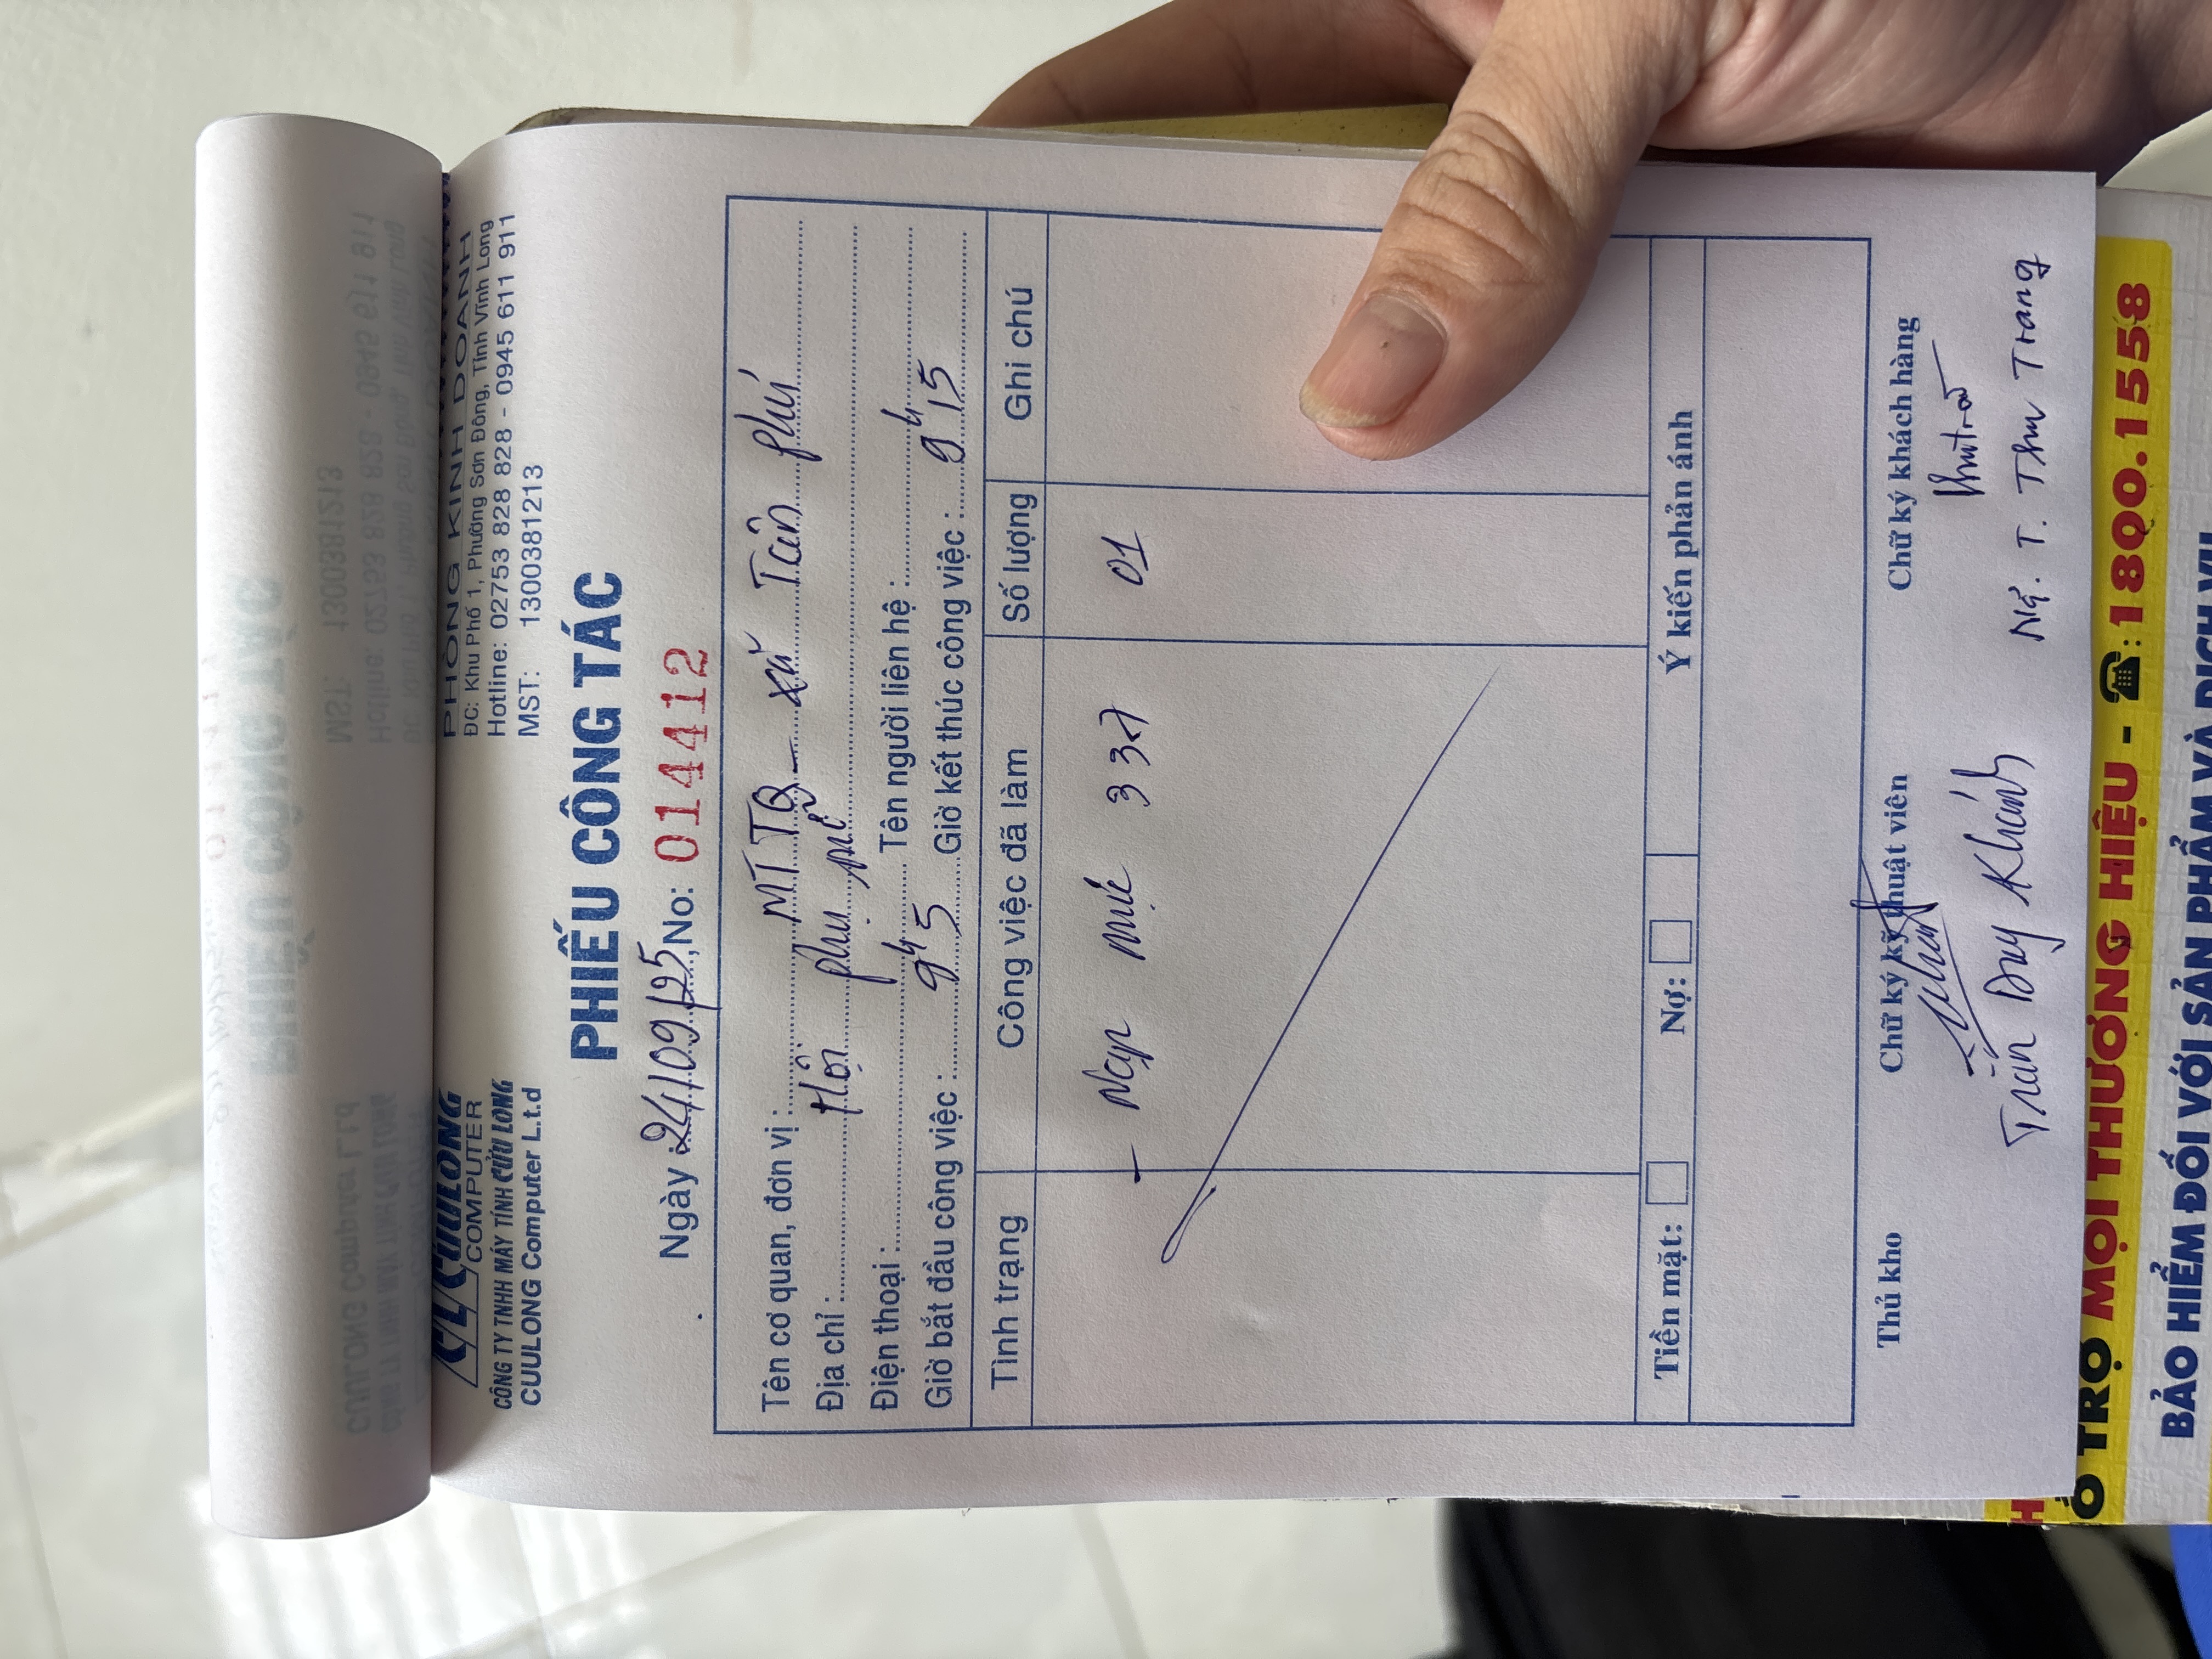 CUULONG
COMPUTER
CÔNG TY TNHH MÁY TÍNH CỬU LONG
CUULONG Computer L.t.d
PHÒNG KINH DOANH
ĐC: Khu Phố 1, Phường Sơn Đông, Tỉnh Vĩnh Long
Hotline: 02753 828 828 - 0945 611 911
MST: 1300381213
PHIẾU CÔNG TÁC
Ngày 24/09/25, No: 014412
Tên cơ quan, đơn vị: MTTQ - xã Tân Phú
Địa chỉ: Hội phụ nữ
Điện thoại: Tên người liên hệ:
Giờ bắt đầu công việc: 9h5 Giờ kết thúc công việc: 9h15
Tình trạng Công việc đã làm Số lượng Ghi chú
- Nạp mực 337 01
Tiền mặt: Nợ: Ý kiến phản ánh
Thủ kho Chữ ký kỹ thuật viên Chữ ký khách hàng
Trần Duy Khánh Ng. T. Thu Trang
Ỗ TRỢ MỌI THƯƠNG HIỆU - ☎: 1800.1558
BẢO HIỂM ĐỐI VỚI SẢN PHẨM VÀ DỊCH VỤ